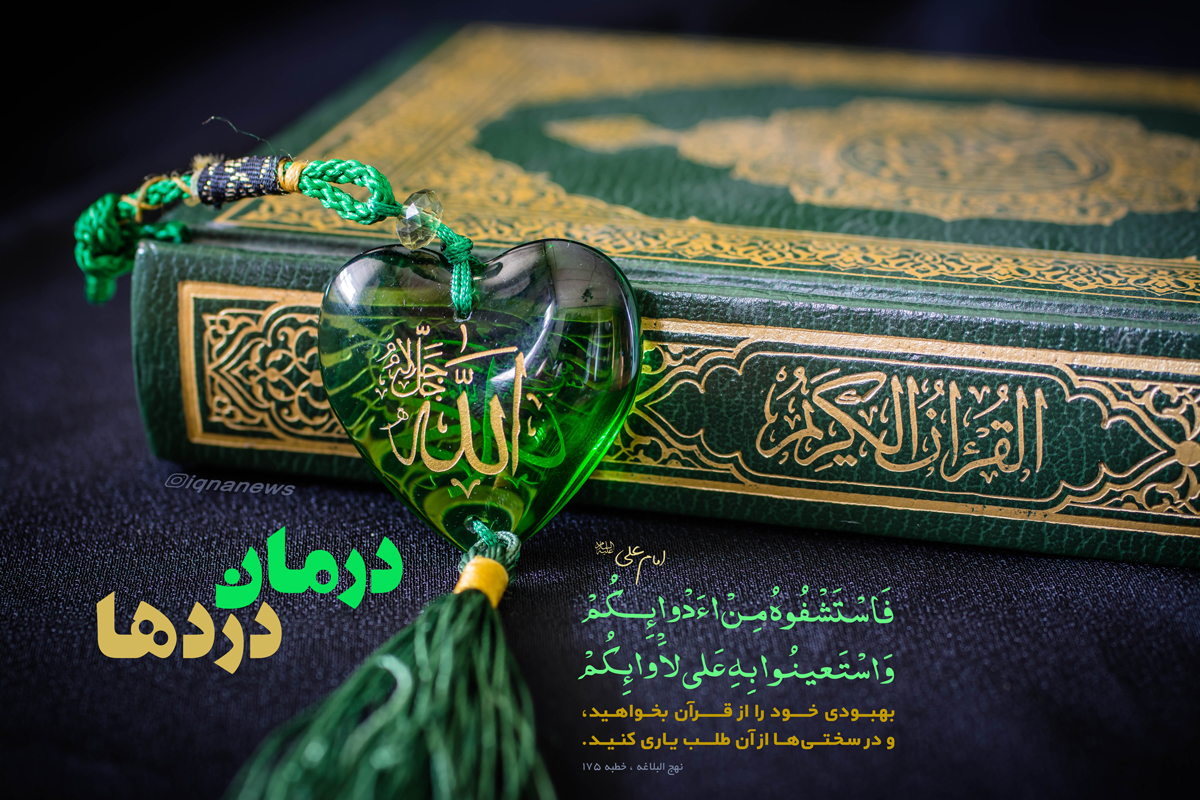 الله
جل جلاله
القرءان الكريم
@iqnanews
درمان
دردها
امام علی علیه‌السلام
فَاسْتَشْفُوهُ مِنْ اَدْوائِكُمْ
وَاسْتَعينُوا بِهِ عَلى لَأْوائِكُمْ
بهبودی خود را از قرآن بخواهید،
و در سختی‌ها از آن طلب یاری کنید.
نهج البلاغه ، خطبه ۱۷۵